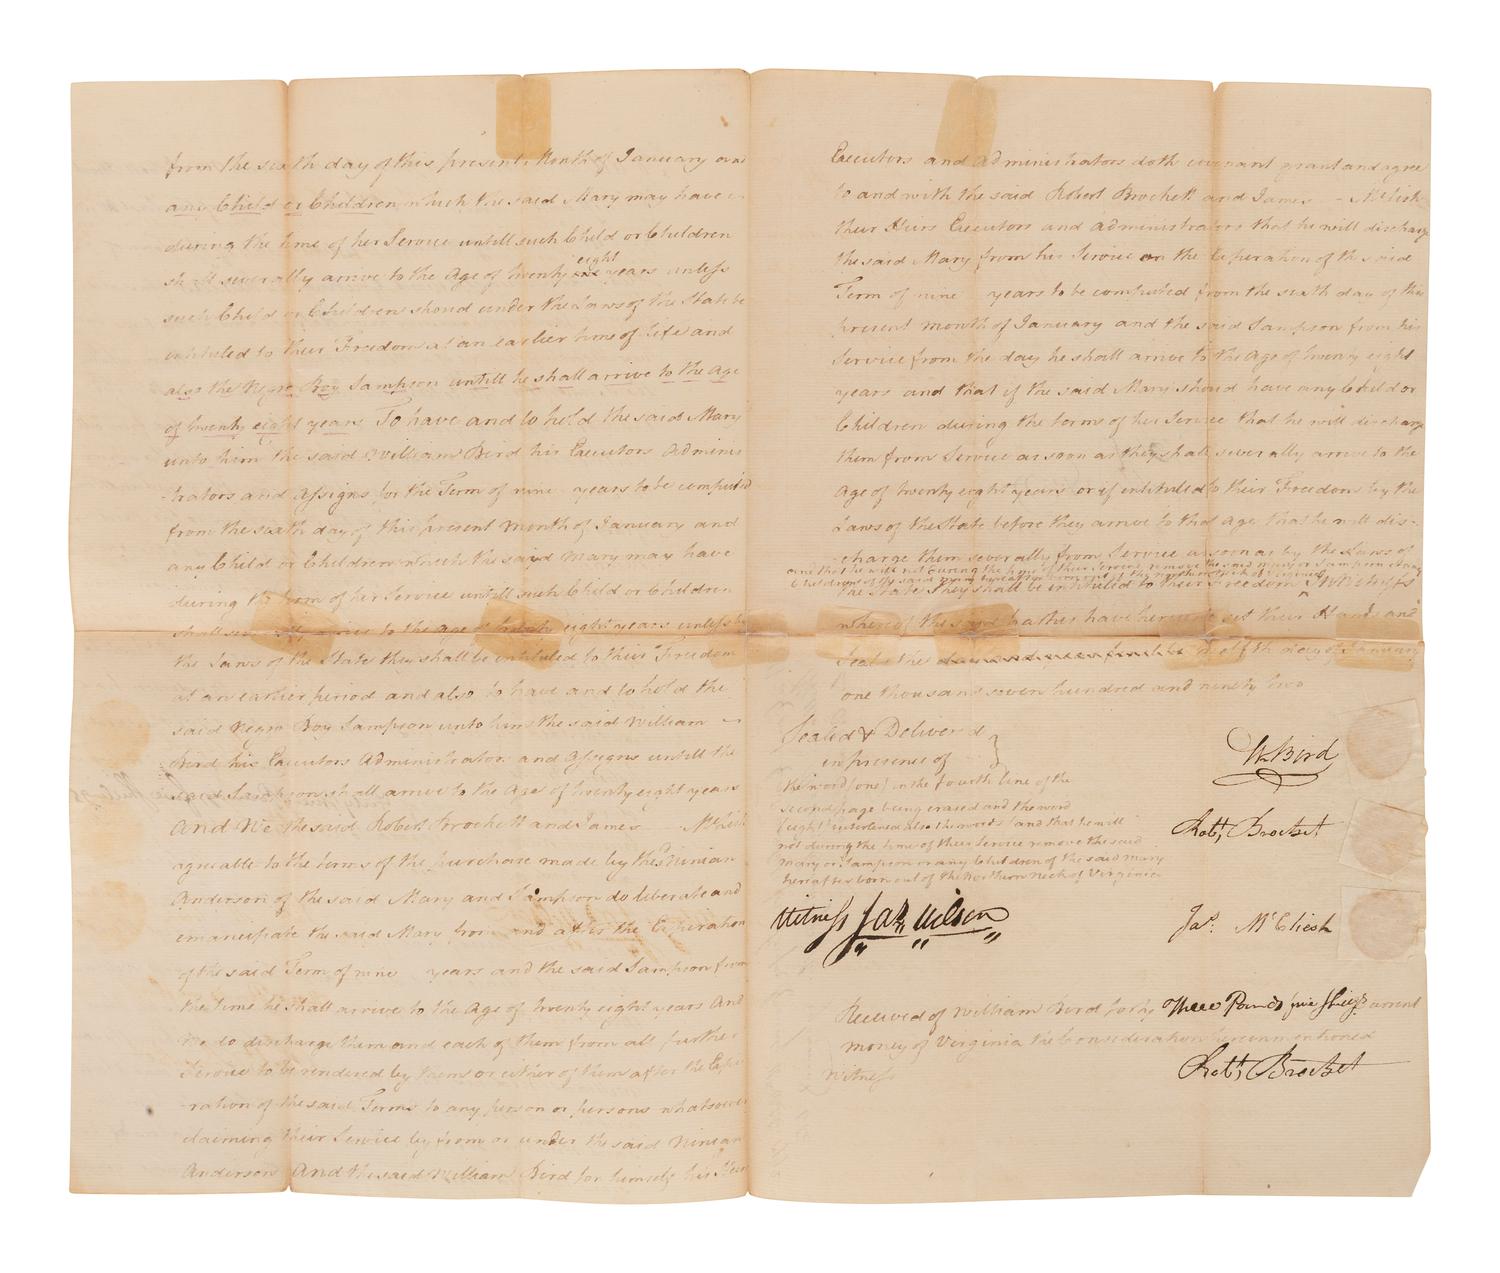 from the sixth day of this present Month of January and
any Child or Children which the said Mary may have
during the time of her Service untill such Child or Children
shall severally arrive to the Age of twenty eight years unless
such Child or Children should under the Laws of the State be
intituled to their Freedom at an earlier time of Life and
also the Negro Boy Sampson untill he shall arrive to the Age
of twenty eight years To have and to hold the said Mary
unto him the said William Bird his Executors Adminis
trators and Assigns for the Term of nine years to be computed
from the sixth day of this present Month of January and
any Child or Children which the said Mary may have
during the term of her Service untill such Child or Children
shall severally arrive to the Age of twenty eight years unless by
the Laws of the State they shall be intituled to their Freedom
at an earlier period and also to have and to hold the
said Negro Boy Sampson unto him the said William
Bird his Executors Administrators and Assigns untill the
said Sampson shall arrive to the Age of twenty eight years
And We the said Robert Brockett and James McClish
agreable to the terms of the purchase made by the Ninian
Anderson of the said Mary and Sampson do liberate and
emancipate the said Mary from and after the Expiration
of the said Term of nine years and the said Sampson from
the time he shall arrive to the Age of twenty eight years And
We do discharge them and each of them from all further
Service to be rendered by them or either of them after the Expi
ration of the said Terms to any person or persons whatsoever
claiming their Service by from or under the said Ninian
Anderson And the said William Bird for himself his Heirs
Executors and Administrators doth covenant grant and agree
to and with the said Robert Brockett and James McClish
their Heirs Executors and Administrators that he will discharge
the said Mary from her Service on the Expiration of the said
Term of nine years to be computed from the sixth day of this
present month of January and the said Sampson from his
Service from the day he shall arrive to the Age of twenty eight
years and that if the said Mary should have any Child or
Children during the terms of her Service that he will discharge
them from Service as soon as they shall severally arrive to the
Age of twenty eight years or if intituled to their Freedom by the
Laws of the State before they arrive to that Age that he will dis-
charge them severally from Service as soon as by the Laws of
and that he will not during the time of their Service remove the said Mary or Sampson or any
Children of the said Mary hereafter born out of the Northern Neck of Virginia
the State they shall be intituled to their Freedom ^ In Witness
whereof the said parties have hereunto set their Hands and
Seals the twelfth day of January
one thousand seven hundred and ninety two
Sealed & Delivered
in presence of
the word (one) in the fourth line of the
second page being erased and the word
(eight) interlined also the words (and that he will
not during the time of their Service remove the said
Mary or Sampson or any Children of the said Mary
hereafter born out of the Northern Neck of Virginia
Wm Bird
Robt, Brocket
Witness Jas Wilson
Jas. McCliesh
Received of William Bird forty Three Pounds five Shillgs current
money of Virginia the Consideration herein mentioned
Witness
Robt, Brocket